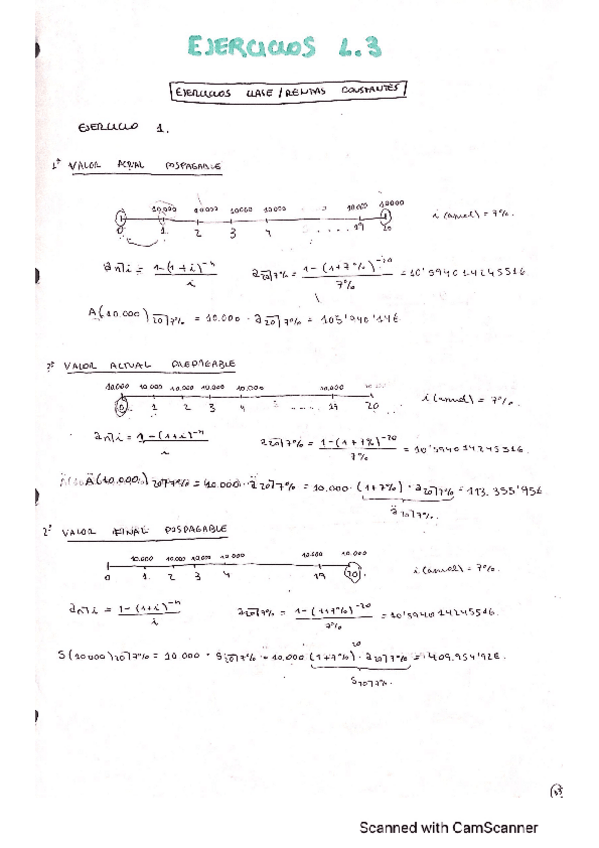 EJERCICIOS L.3
EJERCICIOS CLASE / RENTAS CONSTANTES
EJERCICIO 1.
1º VALOR ACTUAL POSPAGABLE
10.000 10.000 10.000 10.000 10.000 10000
0 1 2 3 4 ..... 19 20
i (anual) = 7%.
a n┐i = 1-(1+i)^-n / i
a 20┐7% = 1-(1+7%)^-20 / 7% = 10'5940142455
A(10.000) 20┐7% = 10.000 · a 20┐7% = 105'940'14€
VALOR ACTUAL PREPAGABLE
10.000 10.000 10.000 10.000 10.000 10.000
0 1 2 3 4 ..... 19 20
i (anual) = 7%.
a n┐i = 1-(1+i)^-n / i
a 20┐7% = 1-(1+7%)^-20 / 7% = 10'5940142455
Ä(10.000) 20┐7% = 10.000 · ä 20┐7% = 10.000 · (1+7%) · a 20┐7% = 113.355'95€
ä 20┐7%.
2º VALOR FINAL POSPAGABLE
10.000 10.000 10.000 10.000 10.000 10.000
0 1 2 3 4 19 20
i (anual) = 7%.
a n┐i = 1-(1+i)^-n / i
a 20┐7% = 1-(1+7%)^-20 / 7% = 10'5940142455
S(10.000) 20┐7% = 10.000 · S 20┐7% = 10.000 (1+7%)^20 · a 20┐7% = 409.954'92€.
S 20┐7%.
Scanned with CamScanner